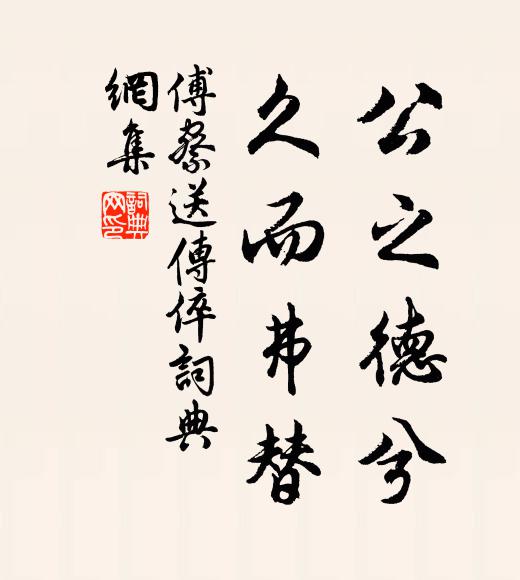 公之德兮
久而弗替
傅察送傅倅詞典
網集
詞典網印